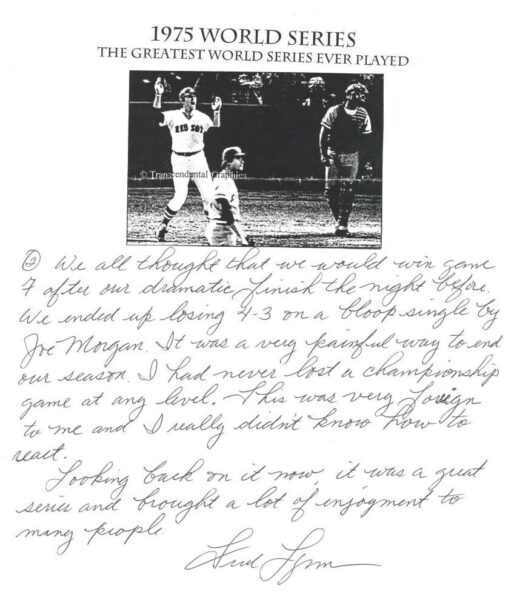 1975 WORLD SERIES
THE GREATEST WORLD SERIES EVER PLAYED
RED SOX
© Transcendental Graphics
② We all thought that we would win game
7 after our dramatic finish the night before.
We ended up losing 4-3 on a bloop single by
Joe Morgan. It was a very painful way to end
our season. I had never lost a championship
game at any level. This was very foreign
to me and I really didn't know how to
react.
Looking back on it now, it was a great
series and brought a lot of enjoyment to
many people.
Fred Lynn